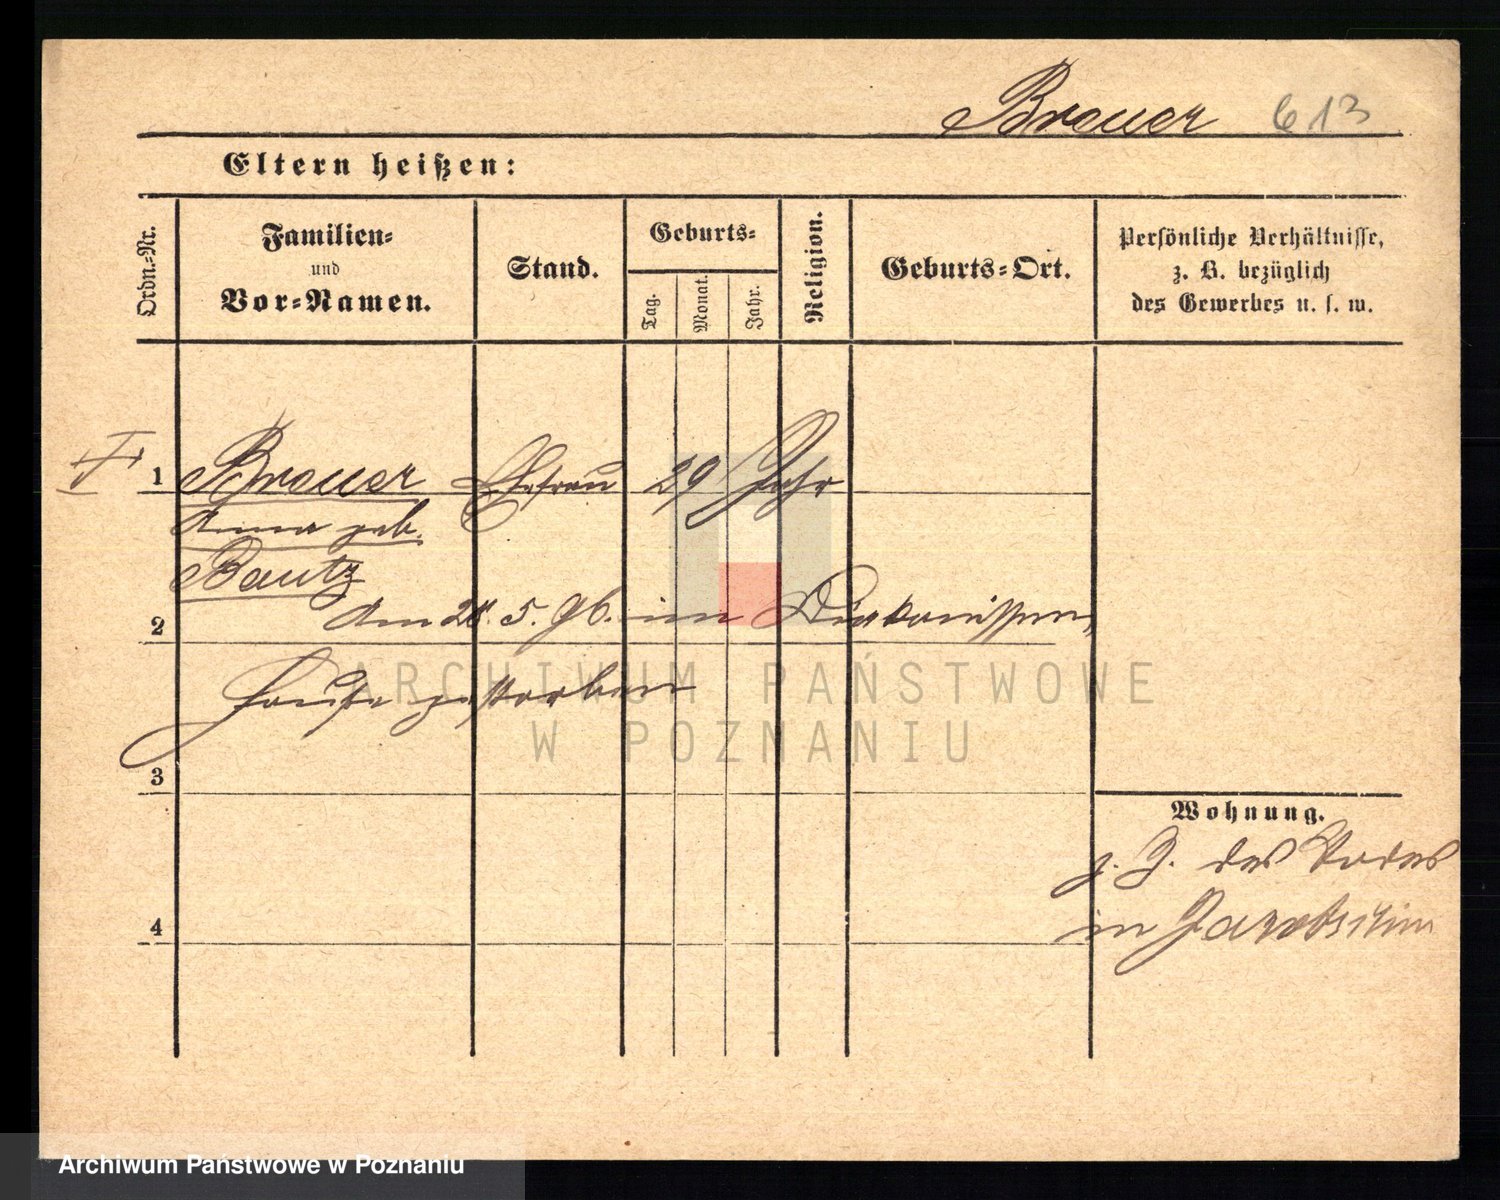 Breuer 613
Eltern heißen:
Ordn.-Nr.
Familien-
und
Vor-Namen.
Stand.
Geburts-
Tag.
Monat.
Jahr.
Religion.
Geburts-Ort.
Persönliche Verhältnisse,
z. B. bezüglich
des Gewerbes u. s. w.
1 Breuer Ehefrau 29 Jahr
Anna geb.
Bautz
2 Am 28. 5. 96. im Diakonissen
hause gestorben
ARCHIWUM PAŃSTWOWE
W POZNANIU
3
Wohnung.
z. Z. des Todes
4 in
Archiwum Państwowe w Poznaniu